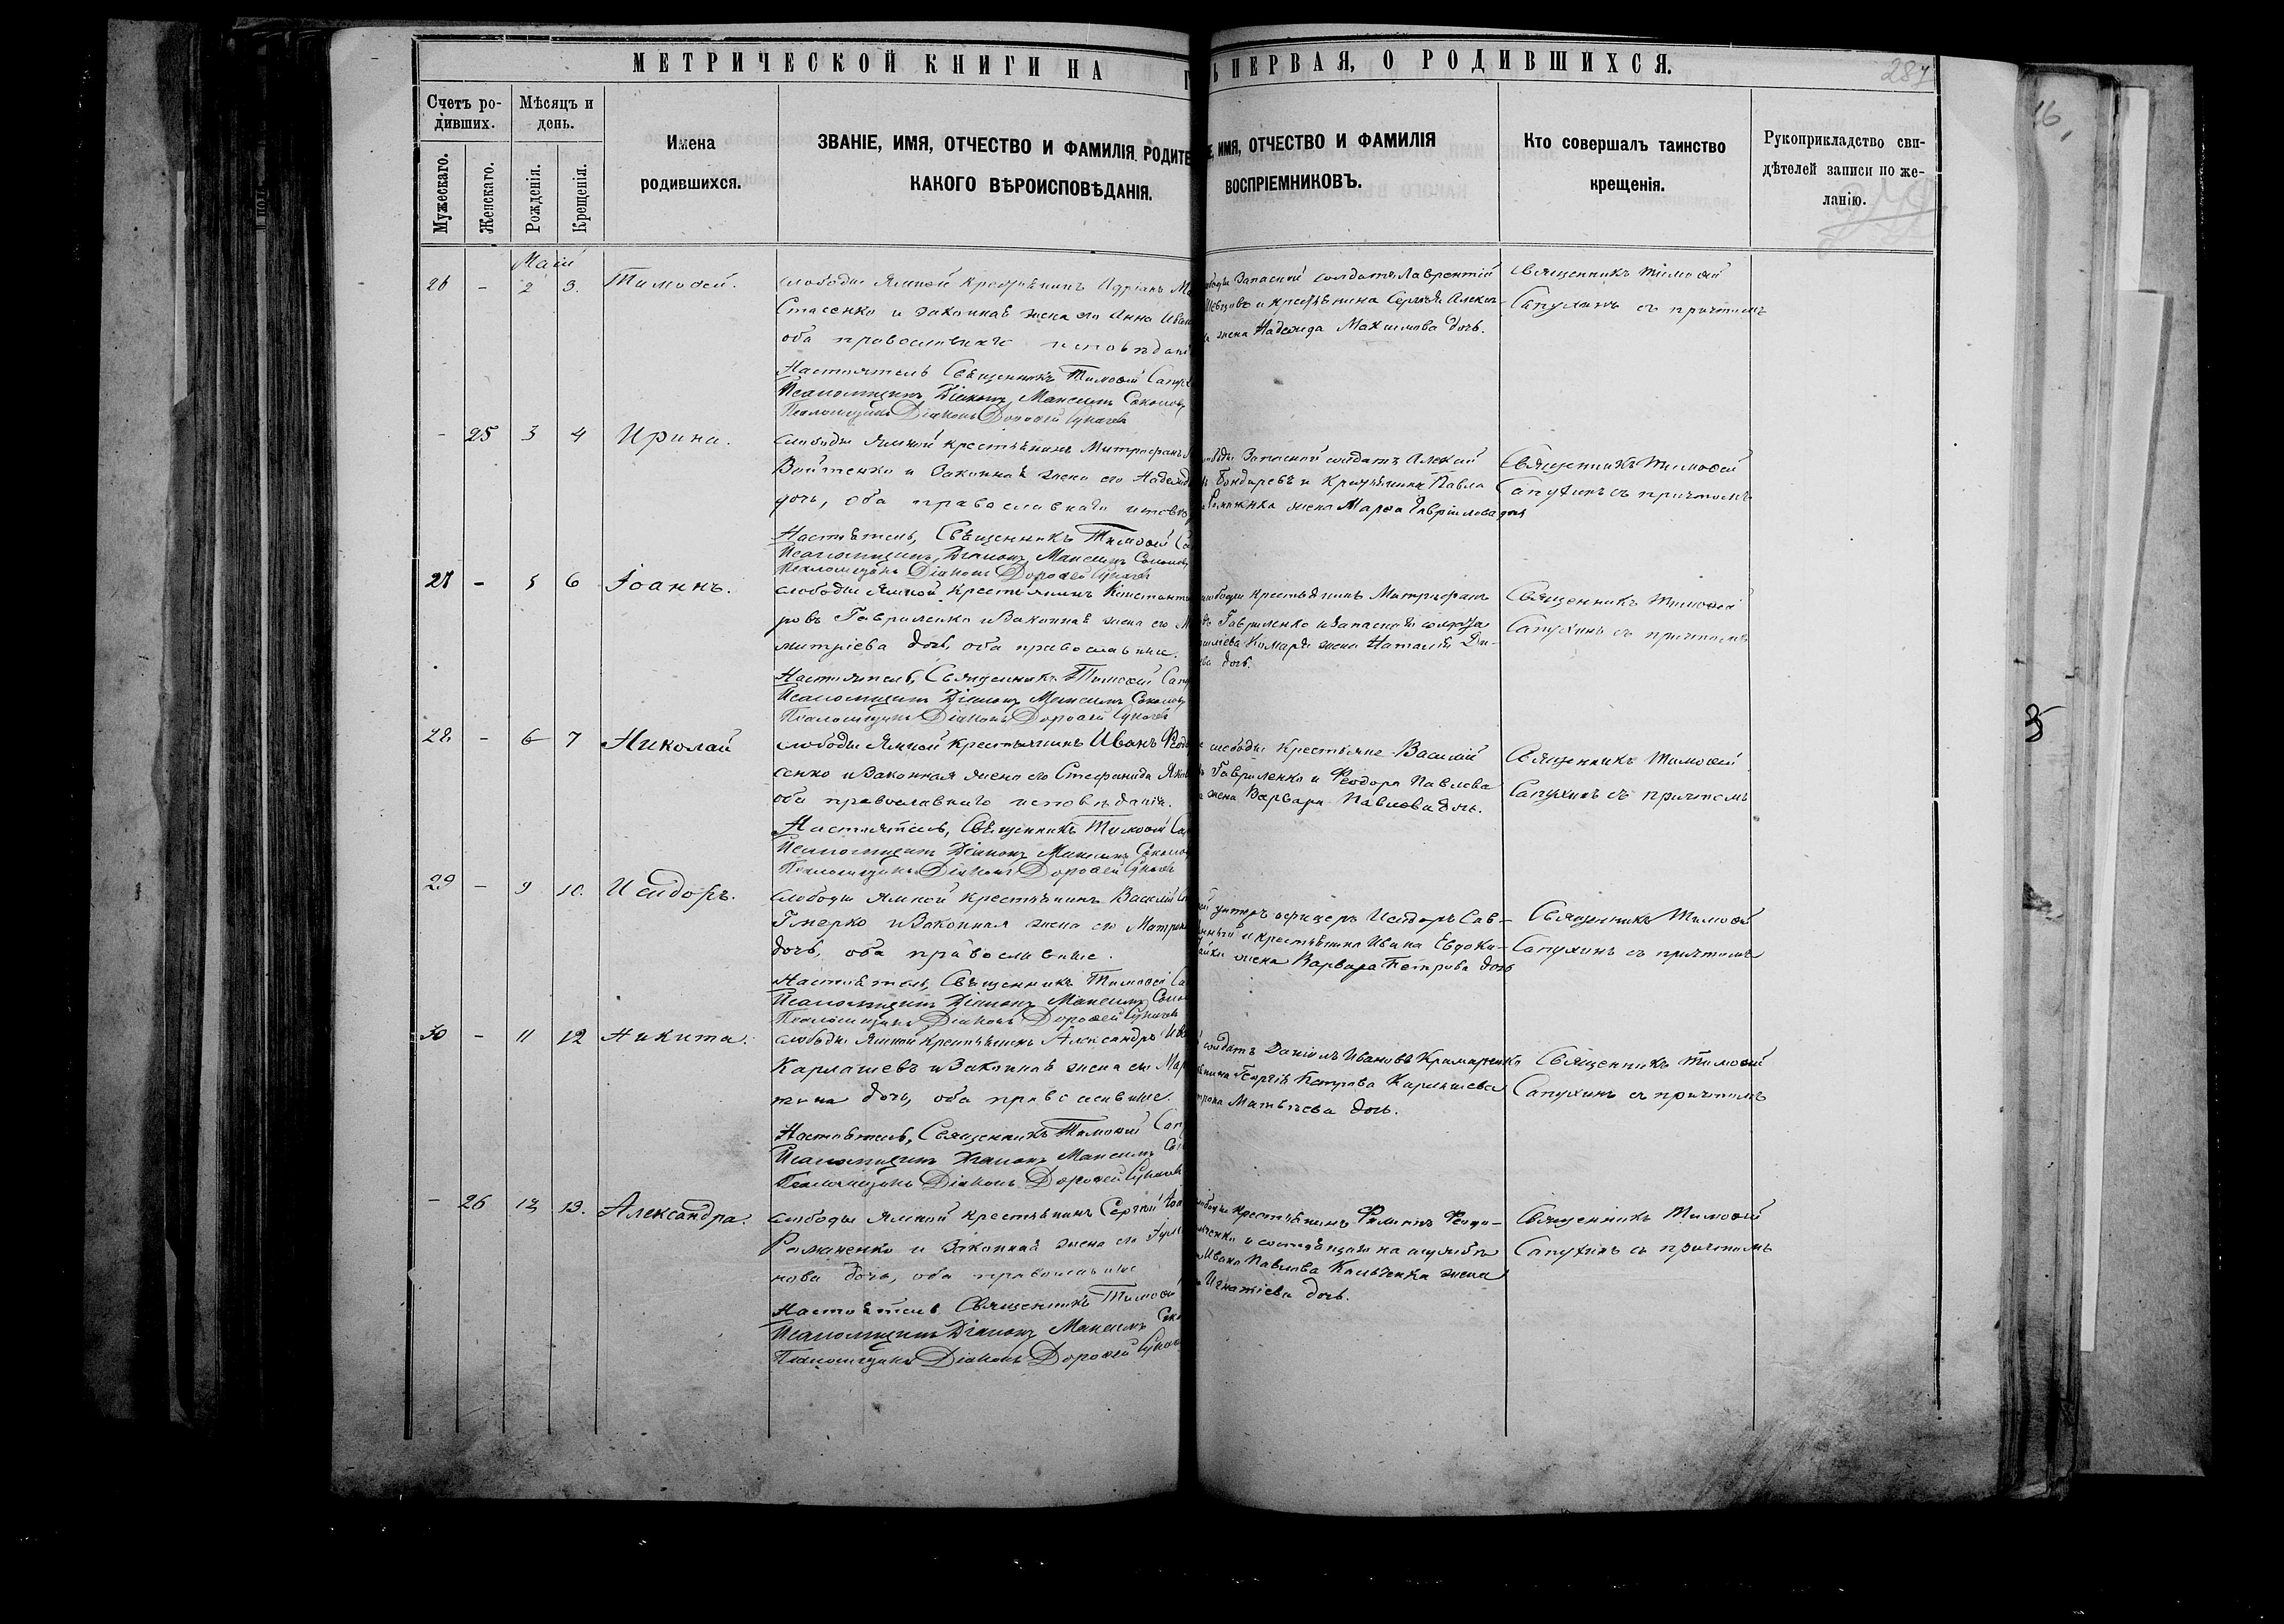 МЕТРИЧЕСКОЙ КНИГИ НА
Ь ПЕРВАЯ, О РОДИВШИХСЯ.
287
Счетъ ро-
дившихъ.
Мѣсяцъ и
день.
Мужескаго.
Женскаго.
Рожденія.
Крещенія.
Имена
родившихся.
ЗВАНІЕ, ИМЯ, ОТЧЕСТВО И ФАМИЛІЯ РОДИТЕ
КАКОГО ВѢРОИСПОВѢДАНІЯ.
ИМЯ, ОТЧЕСТВО И ФАМИЛІЯ
ВОСПРІЕМНИКОВЪ.
Кто совершалъ таинство
крещенія.
Рукоприкладство сви-
дѣтелей записи по же-
ланію.
16
Маій
26 - 2 3. Тимоѳей.
слободы Ямной крестьянинъ Адріанъ
Стасенко и законная жена его Анна Иван
оба православнаго исповѣдані
Настоятель Священникъ Тимоѳей Сапух
Псаломщикъ Діаконъ Максимъ Соколов
Псаломщикъ Діаконъ Дороѳей
Запасной солдатъ Лаврентій
и крестьянина Сергѣя Алексѣ-
жена Надежда Максимова дочь.
Священникъ Тимоѳей
Сапухинъ съ причтомъ
- 25 3 4 Ирина.
слободы Ямной крестьянинъ Митрофанъ
Войтенко и законная жена его Надежд
дочь, оба православнаго исповѣд
Настоятель, Священникъ Тимоѳей Са
Псаломщикъ, Діаконъ Максимъ Соколовъ
Псаломщикъ Діаконъ Дороѳей
Запасной солдатъ Алексѣй
Бондаревъ и крестьянина Павла
Романенка жена Марѳа Гавріилова дочь
Священникъ Тимоѳей
Сапухинъ съ причтомъ
27 - 5 6 Іоаннъ.
слободы Ямной крестьянинъ Константи
ровъ Гавриленко и законная жена его М
митріева дочь, оба православные.
Настоятель, Священникъ Тимоѳей Сап
Псаломщикъ Діаконъ Максимъ Соколовъ
Псаломщикъ Діаконъ Дороѳей
слободы крестьянинъ Митрофанъ
Гавриленко и запаснаго солдата
Комаря жена Наталія Ди-
ва дочь.
Священникъ Тимоѳей
Сапухинъ съ причтомъ
28 - 6 7 Николай
слободы Ямной крестьянинъ Иванъ Ѳеод
сенко и законная жена его Стефанида Яков
оба православнаго исповѣданія.
Настоятель, Священникъ Тимоѳей Сап
Псаломщикъ Діаконъ Максимъ Соколов
Псаломщикъ Діаконъ Дороѳей
слободы крестьяне Василій
Гавриленко и Ѳеодора Павлова
жена Варвара Павлова дочь.
Священникъ Тимоѳей
Сапухинъ съ причтомъ
29 - 9 10. Исидоръ.
слободы Ямной крестьянинъ Василій
и законная жена его Матрон
дочь, оба православные.
Настоятель, Священникъ Тимоѳей Са
Псаломщикъ Діаконъ Максимъ Соко
Псаломщикъ Діаконъ Дороѳей
унтеръ офицеръ Исидоръ Сав-
и крестьянина Ивана Евдоки-
жена Варвара Петрова дочь
Священникъ Тимоѳей
Сапухинъ съ причтомъ
30 - 11 12 Никита.
слободы Ямной крестьянинъ Александръ Ив
Карлашевъ и законная жена его Мар
тина дочь, оба православные.
Настоятель, Священникъ Тимоѳей Сап
Псаломщикъ Діаконъ Максимъ Со
Псаломщикъ Діаконъ Дороѳей
солдатъ Даніилъ Ивановъ Крамаренко
Георгія Петрова Карлашева
Матвѣева дочь.
Священникъ Тимоѳей
Сапухинъ съ причтомъ
- 26 12 13. Александра.
слободы Ямной крестьянинъ Сергѣй
Романенко и законная жена его
нова дочь, оба православные
Настоятель Священникъ Тимоѳей
Псаломщикъ Діаконъ Максимъ Соко
Псаломщикъ Діаконъ Дороѳей
крестьянинъ Филиппъ Ѳеодо-
и состоящаго на службѣ
Ивана Павлова жена
Игнатіева дочь.
Священникъ Тимоѳей
Сапухинъ съ причтомъ